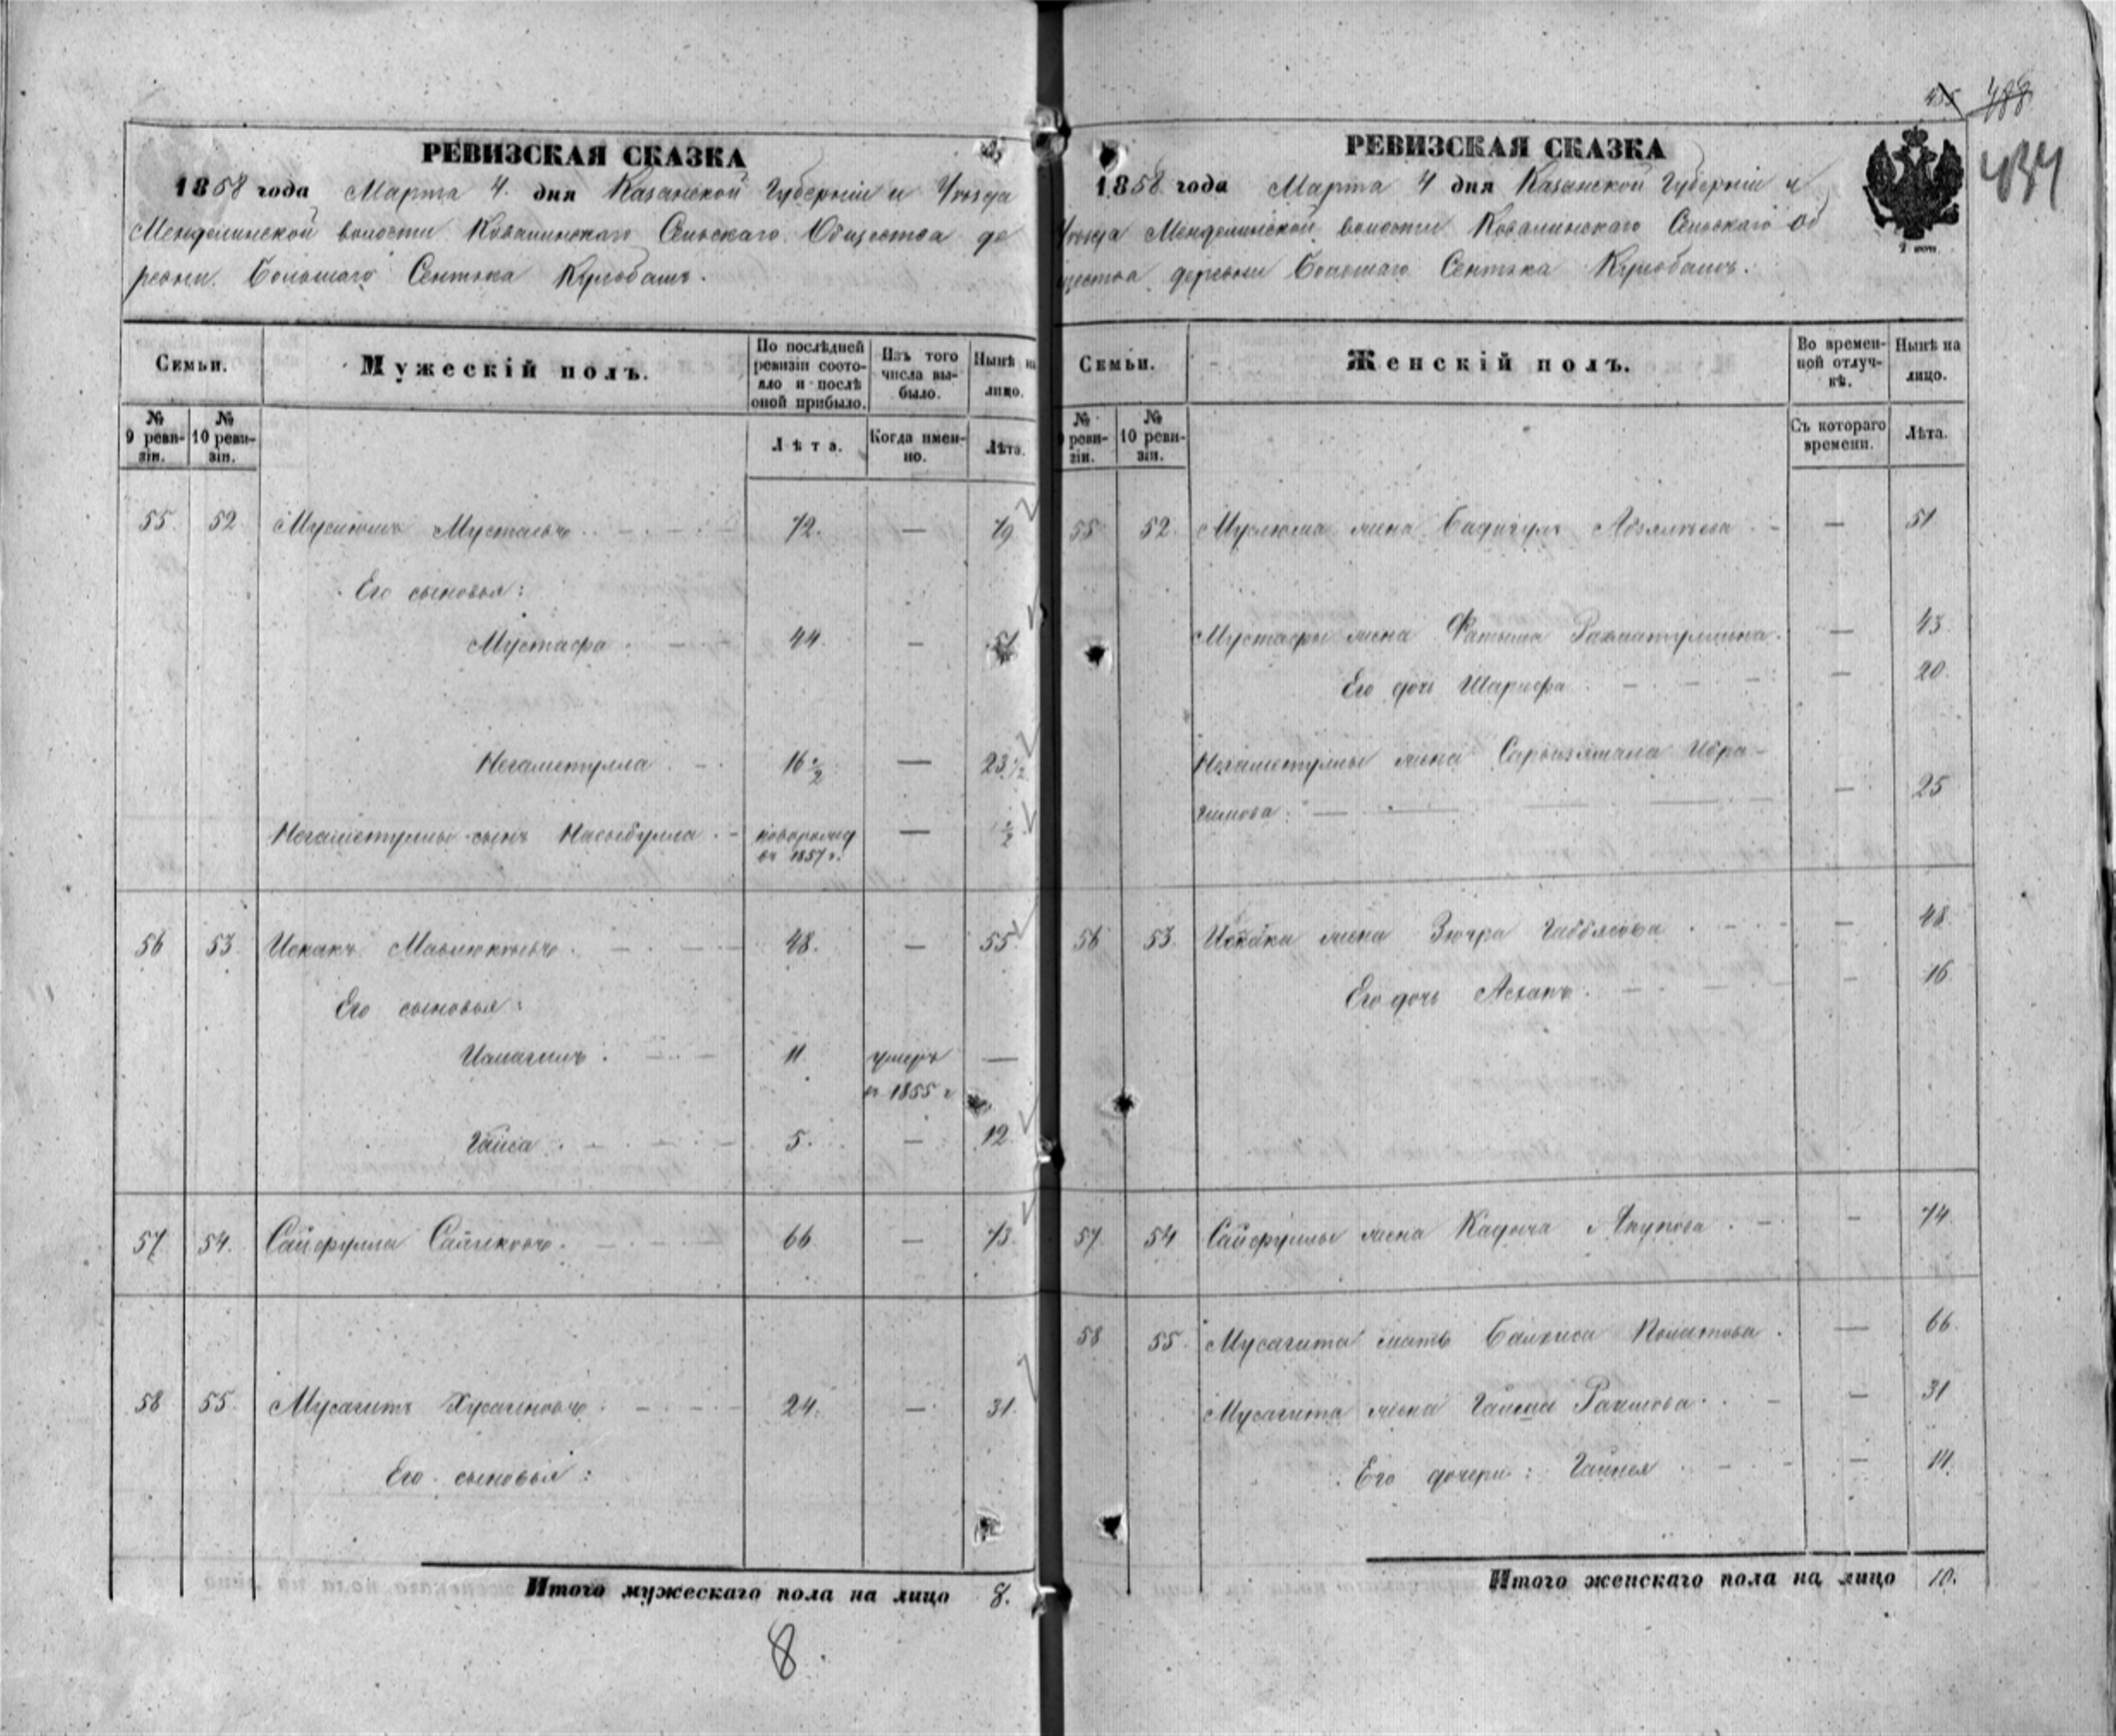 455 488
434
РЕВИЗСКАЯ СКАЗКА
1858 года Марта 4. дня Казанской Губерніи и Уѣзда
Менделинской волости Ковалинскаго Сельскаго Общества де
ревни Большаго Сентяка Кулюбашъ.
Семьи.
Мужескій полъ.
По послѣдней ревизіи состояло и послѣ оной прибыло.
Изъ того числа выбыло.
Нынѣ на лицо.
№ 9 ревизіи.
№ 10 ревизіи.
Лѣта.
Когда именно.
Лѣта.
55. 52. Муслюмъ Мустаевъ 72. — 79
Его сыновья:
Мустафа 44. — 51
Негаметулла 16 1/2 — 23 1/2
Негаметуллы сынъ Насыбулла новорожд въ 1857 г. — 1/2
56 53. Искакъ Мавлюкѣевъ 48. — 55
Его сыновья:
Исмагилъ 11 умеръ въ 1855 г —
Гайса 5. — 12
57 54. Сайфулла 66 — 73.
58 55. Мусагитъ Хусаиновъ 24. — 31.
Его сыновья:
Итого мужескаго пола на лицо 8.
8
РЕВИЗСКАЯ СКАЗКА
1858 года Марта 4 дня Казанской Губерніи и
Уѣзда Менделинской волости Ковалинскаго Сельскаго Об
щества деревни Большаго Сентяка Кулюбашъ.
Семьи.
Женскій полъ.
Во временной отлучкѣ.
Нынѣ на лицо.
№ 9 ревизіи.
№ 10 ревизіи.
Съ котораго времени.
Лѣта.
55 52. Муслюма жена Бадигулъ — 51
Мустафы жена Фатыма Рахматуллина — 43
Его дочь Шарифа — 20.
Негаметуллы жена Ибра-
гимова — 25
56 53. Искака жена Зюгра — 48
Его дочь Асхапъ — 16
57 54 Сайфуллы жена Кадыча Якупова — 74
58 55. Мусагита мать Балкиса — 66.
Мусагита жена Рахимова — 31
Его дочери: — 11.
Итого женскаго пола на лицо 10.